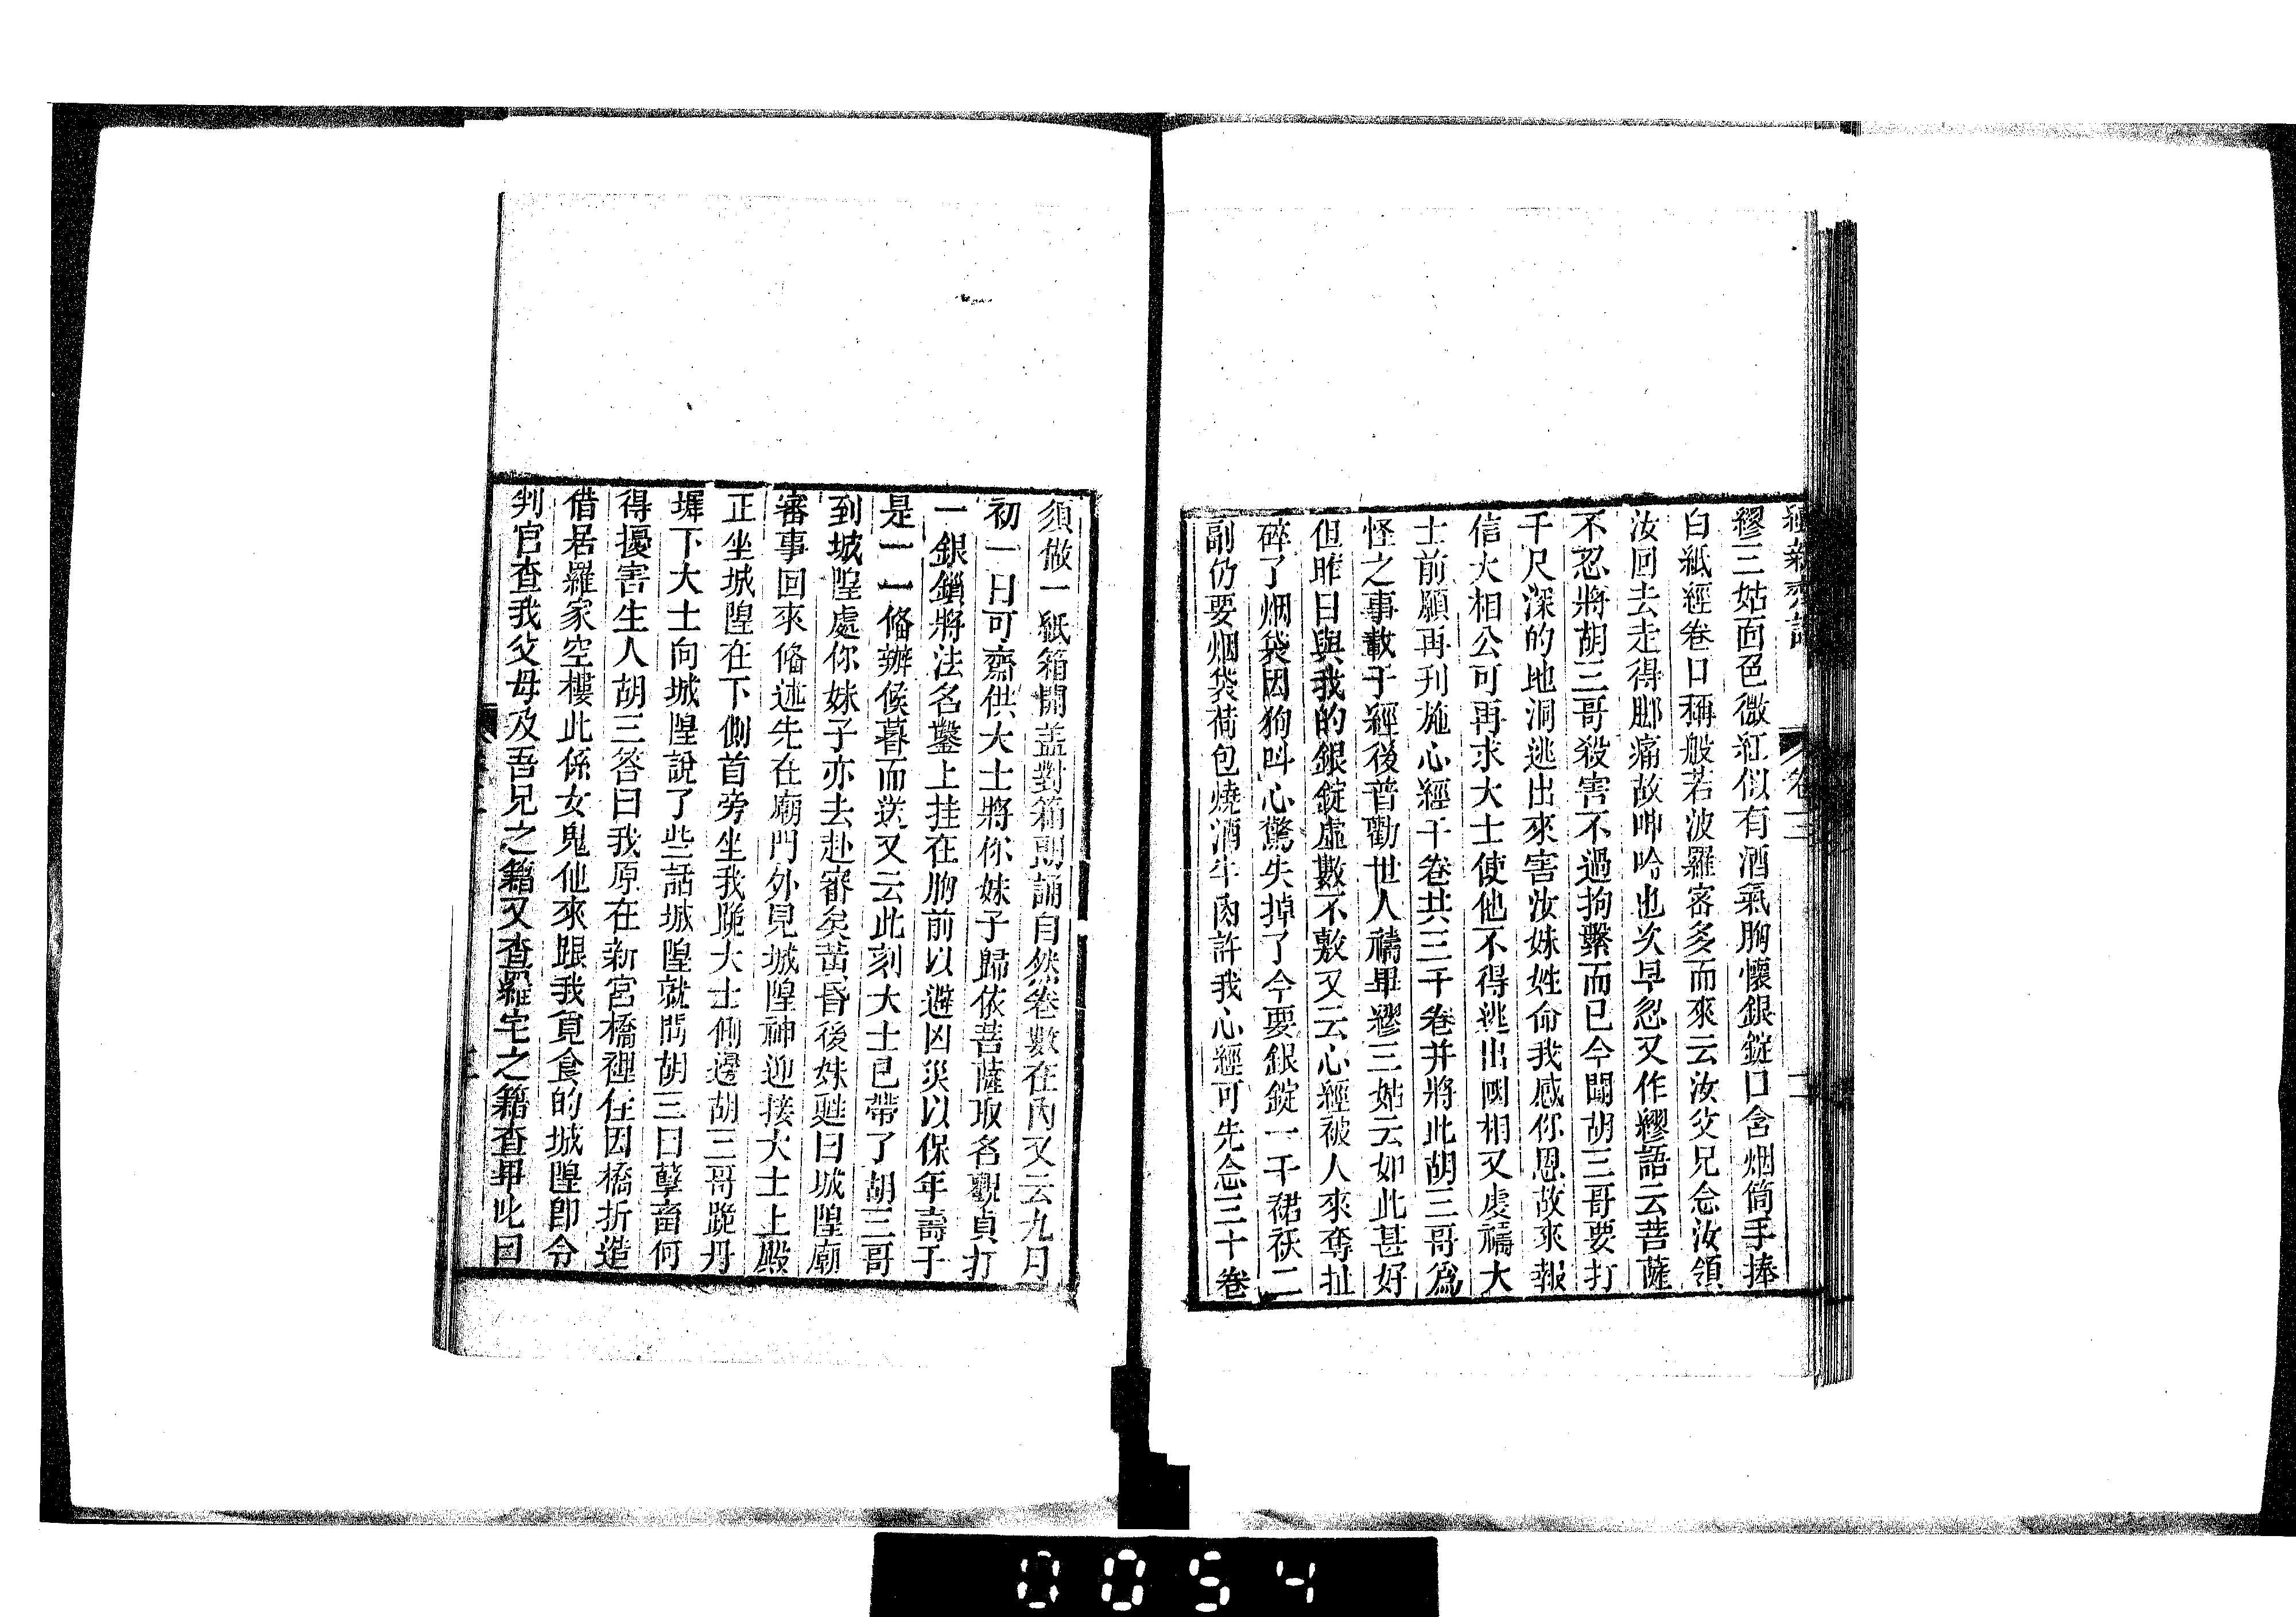 續新齊諧　卷三　二
繆三姑面色微紅似有酒氣胸懷銀錠口含烟筒手捧
白紙經卷口稱般若波羅密多而來云汝父兄念汝領
汝回去走得腳痛故呻吟也次早忽又作繆語云菩薩
不忍將胡三哥殺害不過拘繫而已今聞胡三哥要打
千尺深的地洞逃出來害汝妹姓命我感你恩故來報
信大相公可再求大士使他不得逃出闕相又虔禱大
士前願再刊施心經千卷共三千卷并將此胡三哥爲
怪之事載于經後普勸世人禱畢繆三姑云如此甚好
但昨日與我的銀錠虛數不敷又云心經被人來奪扯
碎了烟袋因狗叫心驚失掉了今要銀錠一千裙袄二
副仍要烟袋荷包燒酒牛肉許我心經可先念三十卷
須做一紙箱開盖對箱朗誦自然卷數在內又云九月
初一日可齋供大士將你妹子歸依菩薩取名觀貞打
一銀鎖將法名鑿上挂在胸前以避凶災以保年壽于
是一一俻辦候暮而送又云此刻大士已帶了胡三哥
到城隍處你妹子亦去赴審矣黃昏後妹甦曰城隍廟
審事回來俻述先在廟門外見城隍神迎接大士上殿
正坐城隍在下側首旁坐我跪大士側邊胡三哥跪丹
墀下大士向城隍說了些話城隍就問胡三曰孽畜何
得擾害生人胡三答曰我原在新宮橋裡住因橋折造
借居羅家空樓此係女鬼他來跟我覓食的城隍卽令
判官查我父母及吾兄之籍又查羅宅之籍查畢叱曰